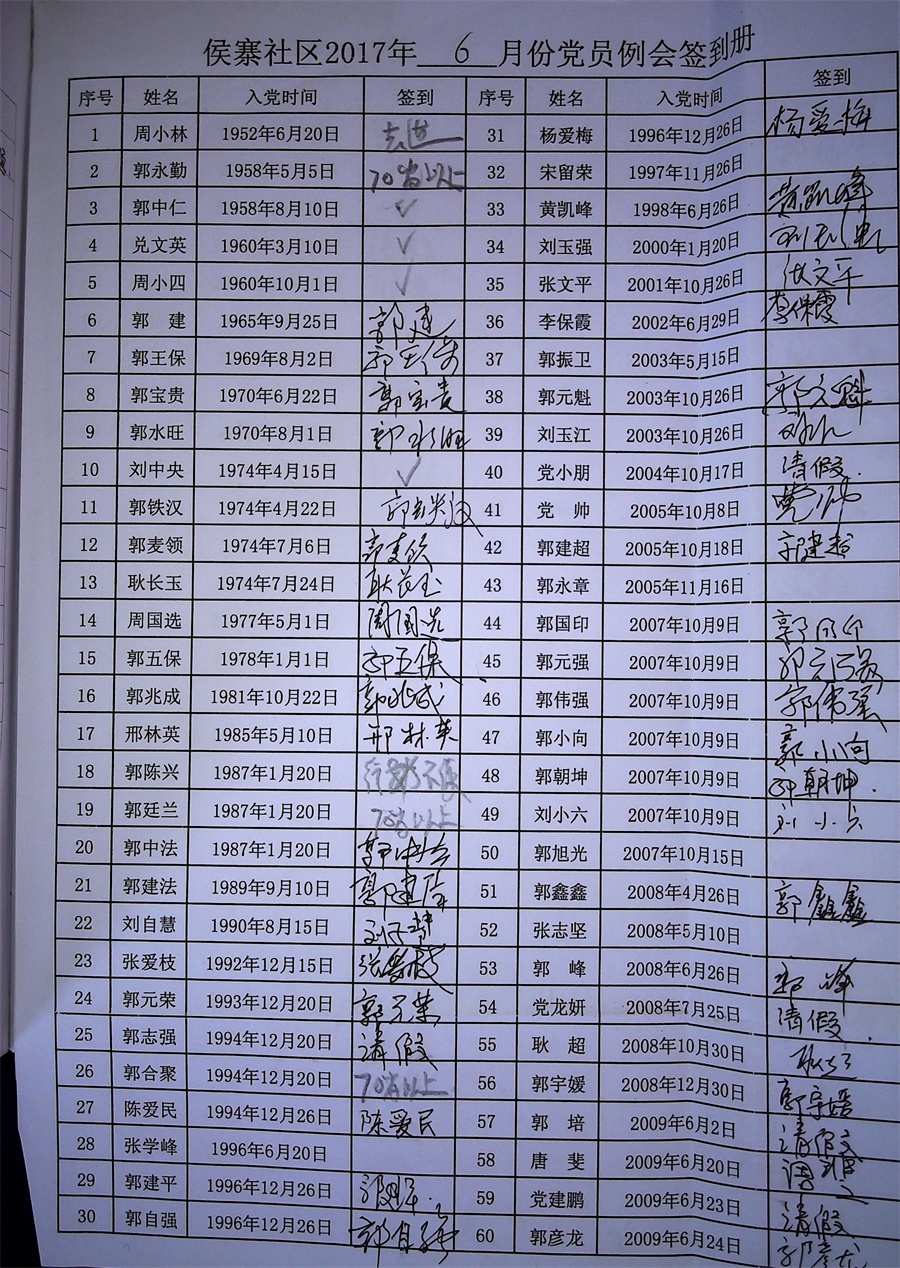 侯寨社区2017年 6 月份党员例会签到册
序号 姓名 入党时间 签到 序号 姓名 入党时间 签到
1 周小林 1952年6月20日 去世 31 杨爱梅 1996年12月26日 杨爱梅
2 郭永勤 1958年5月5日 70岁以上 32 宋留荣 1997年11月26日
3 郭中仁 1958年8月10日 ✓ 33 黄凯峰 1998年6月26日 黄凯峰
4 兑文英 1960年3月10日 ✓ 34 刘玉强 2000年1月20日
5 周小四 1960年10月1日 ✓ 35 张文平 2001年10月26日 张文平
6 郭建 1965年9月25日 郭建 36 李保霞 2002年6月29日 李保霞
7 郭王保 1969年8月2日 37 郭振卫 2003年5月15日
8 郭宝贵 1970年6月22日 郭宝贵 38 郭元魁 2003年10月26日 郭元魁
9 郭水旺 1970年8月1日 郭水旺 39 刘玉江 2003年10月26日
10 刘中央 1974年4月15日 ✓ 40 党小朋 2004年10月17日 请假.
11 郭铁汉 1974年4月22日 41 党帅 2005年10月8日 党帅
12 郭麦领 1974年7月6日 郭麦领 42 郭建超 2005年10月18日 郭建超
13 耿长玉 1974年7月24日 耿长玉 43 郭永章 2005年11月16日
14 周国选 1977年5月1日 周国选 44 郭国印 2007年10月9日 郭国印
15 郭五保 1978年1月1日 郭五保 45 郭元强 2007年10月9日 郭元强
16 郭兆成 1981年10月22日 郭兆成 46 郭伟强 2007年10月9日 郭伟强
17 邢林英 1985年5月10日 邢林英 47 郭小向 2007年10月9日 郭小向
18 郭陈兴 1987年1月20日 48 郭朝坤 2007年10月9日 郭朝坤.
19 郭廷兰 1987年1月20日 70岁以上 49 刘小六 2007年10月9日 刘小六
20 郭中法 1987年1月20日 郭中法 50 郭旭光 2007年10月15日
21 郭建法 1989年9月10日 郭建法 51 郭鑫鑫 2008年4月26日 郭鑫鑫
22 刘自慧 1990年8月15日 52 张志坚 2008年5月10日
23 张爱枝 1992年12月15日 张爱枝 53 郭峰 2008年6月26日 郭峰
24 郭元荣 1993年12月20日 郭元荣 54 党龙妍 2008年7月25日 请假
25 郭志强 1994年12月20日 请假 55 耿超 2008年10月30日 耿超
26 郭合聚 1994年12月20日 70岁以上 56 郭宇媛 2008年12月30日 郭宇媛
27 陈爱民 1994年12月26日 陈爱民 57 郭培 2009年6月2日 请假
28 张学峰 1996年6月20日 58 唐斐 2009年6月20日
29 郭建平 1996年12月26日 59 党建鹏 2009年6月23日 请假
30 郭自强 1996年12月26日 郭自强 60 郭彦龙 2009年6月24日 郭彦龙